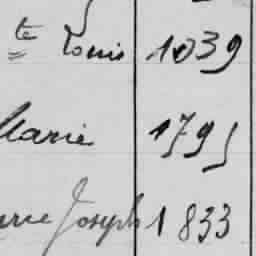 te Louis 1839
Marie 1795
Joseph 1833